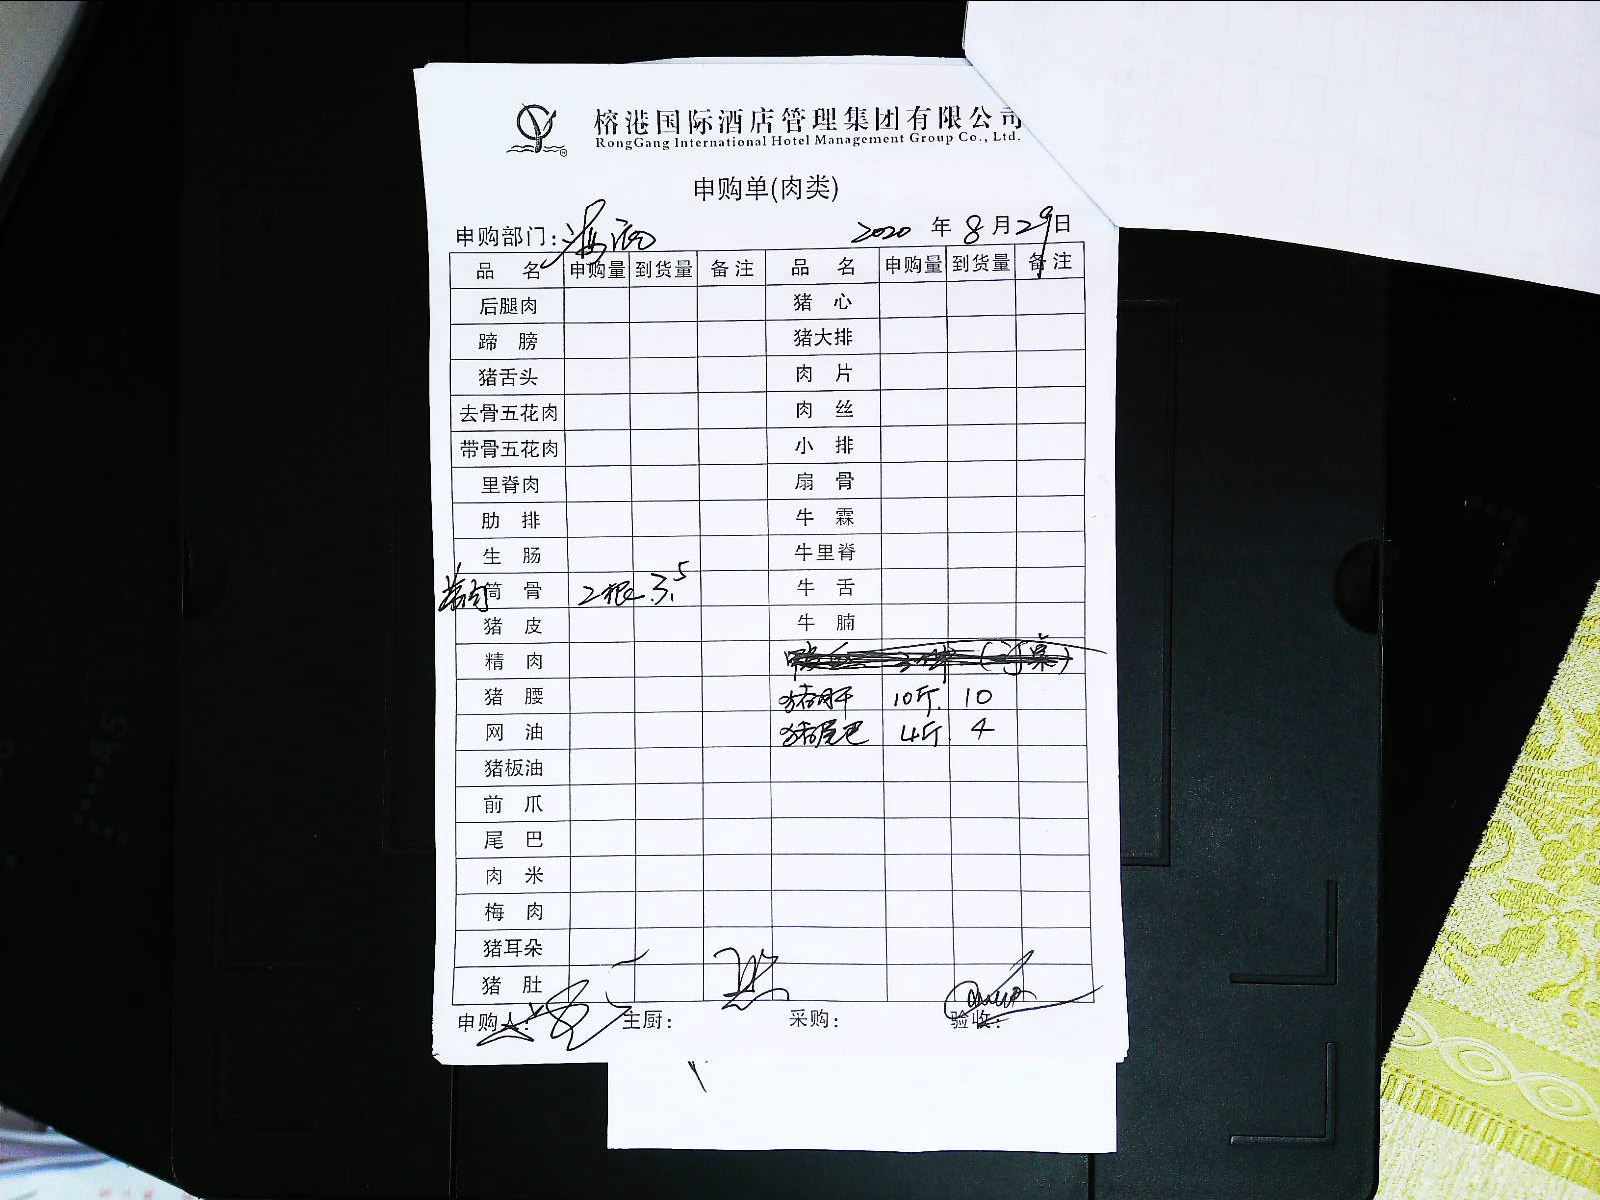 榕港国际酒店管理集团有限公司
RongGang International Hotel Management Group Co., Ltd.
申购单(肉类)
申购部门: 2020 年 8 月 29 日
品 名 申购量 到货量 备注 品 名 申购量 到货量 备注
后腿肉 猪 心
蹄 膀 猪大排
猪舌头 肉 片
去骨五花肉 肉 丝
带骨五花肉 小 排
里脊肉 扇 骨
肋 排 牛 霖
生 肠 牛里脊
筒 骨 2根 3.5 牛 舌
猪 皮 牛 腩
精 肉
猪 腰 猪肝 10斤 10
网 油 猪尾巴 4斤 4
猪板油
前 爪
尾 巴
肉 米
梅 肉
猪耳朵
猪 肚
申购人: 主厨: 采购: 验收: